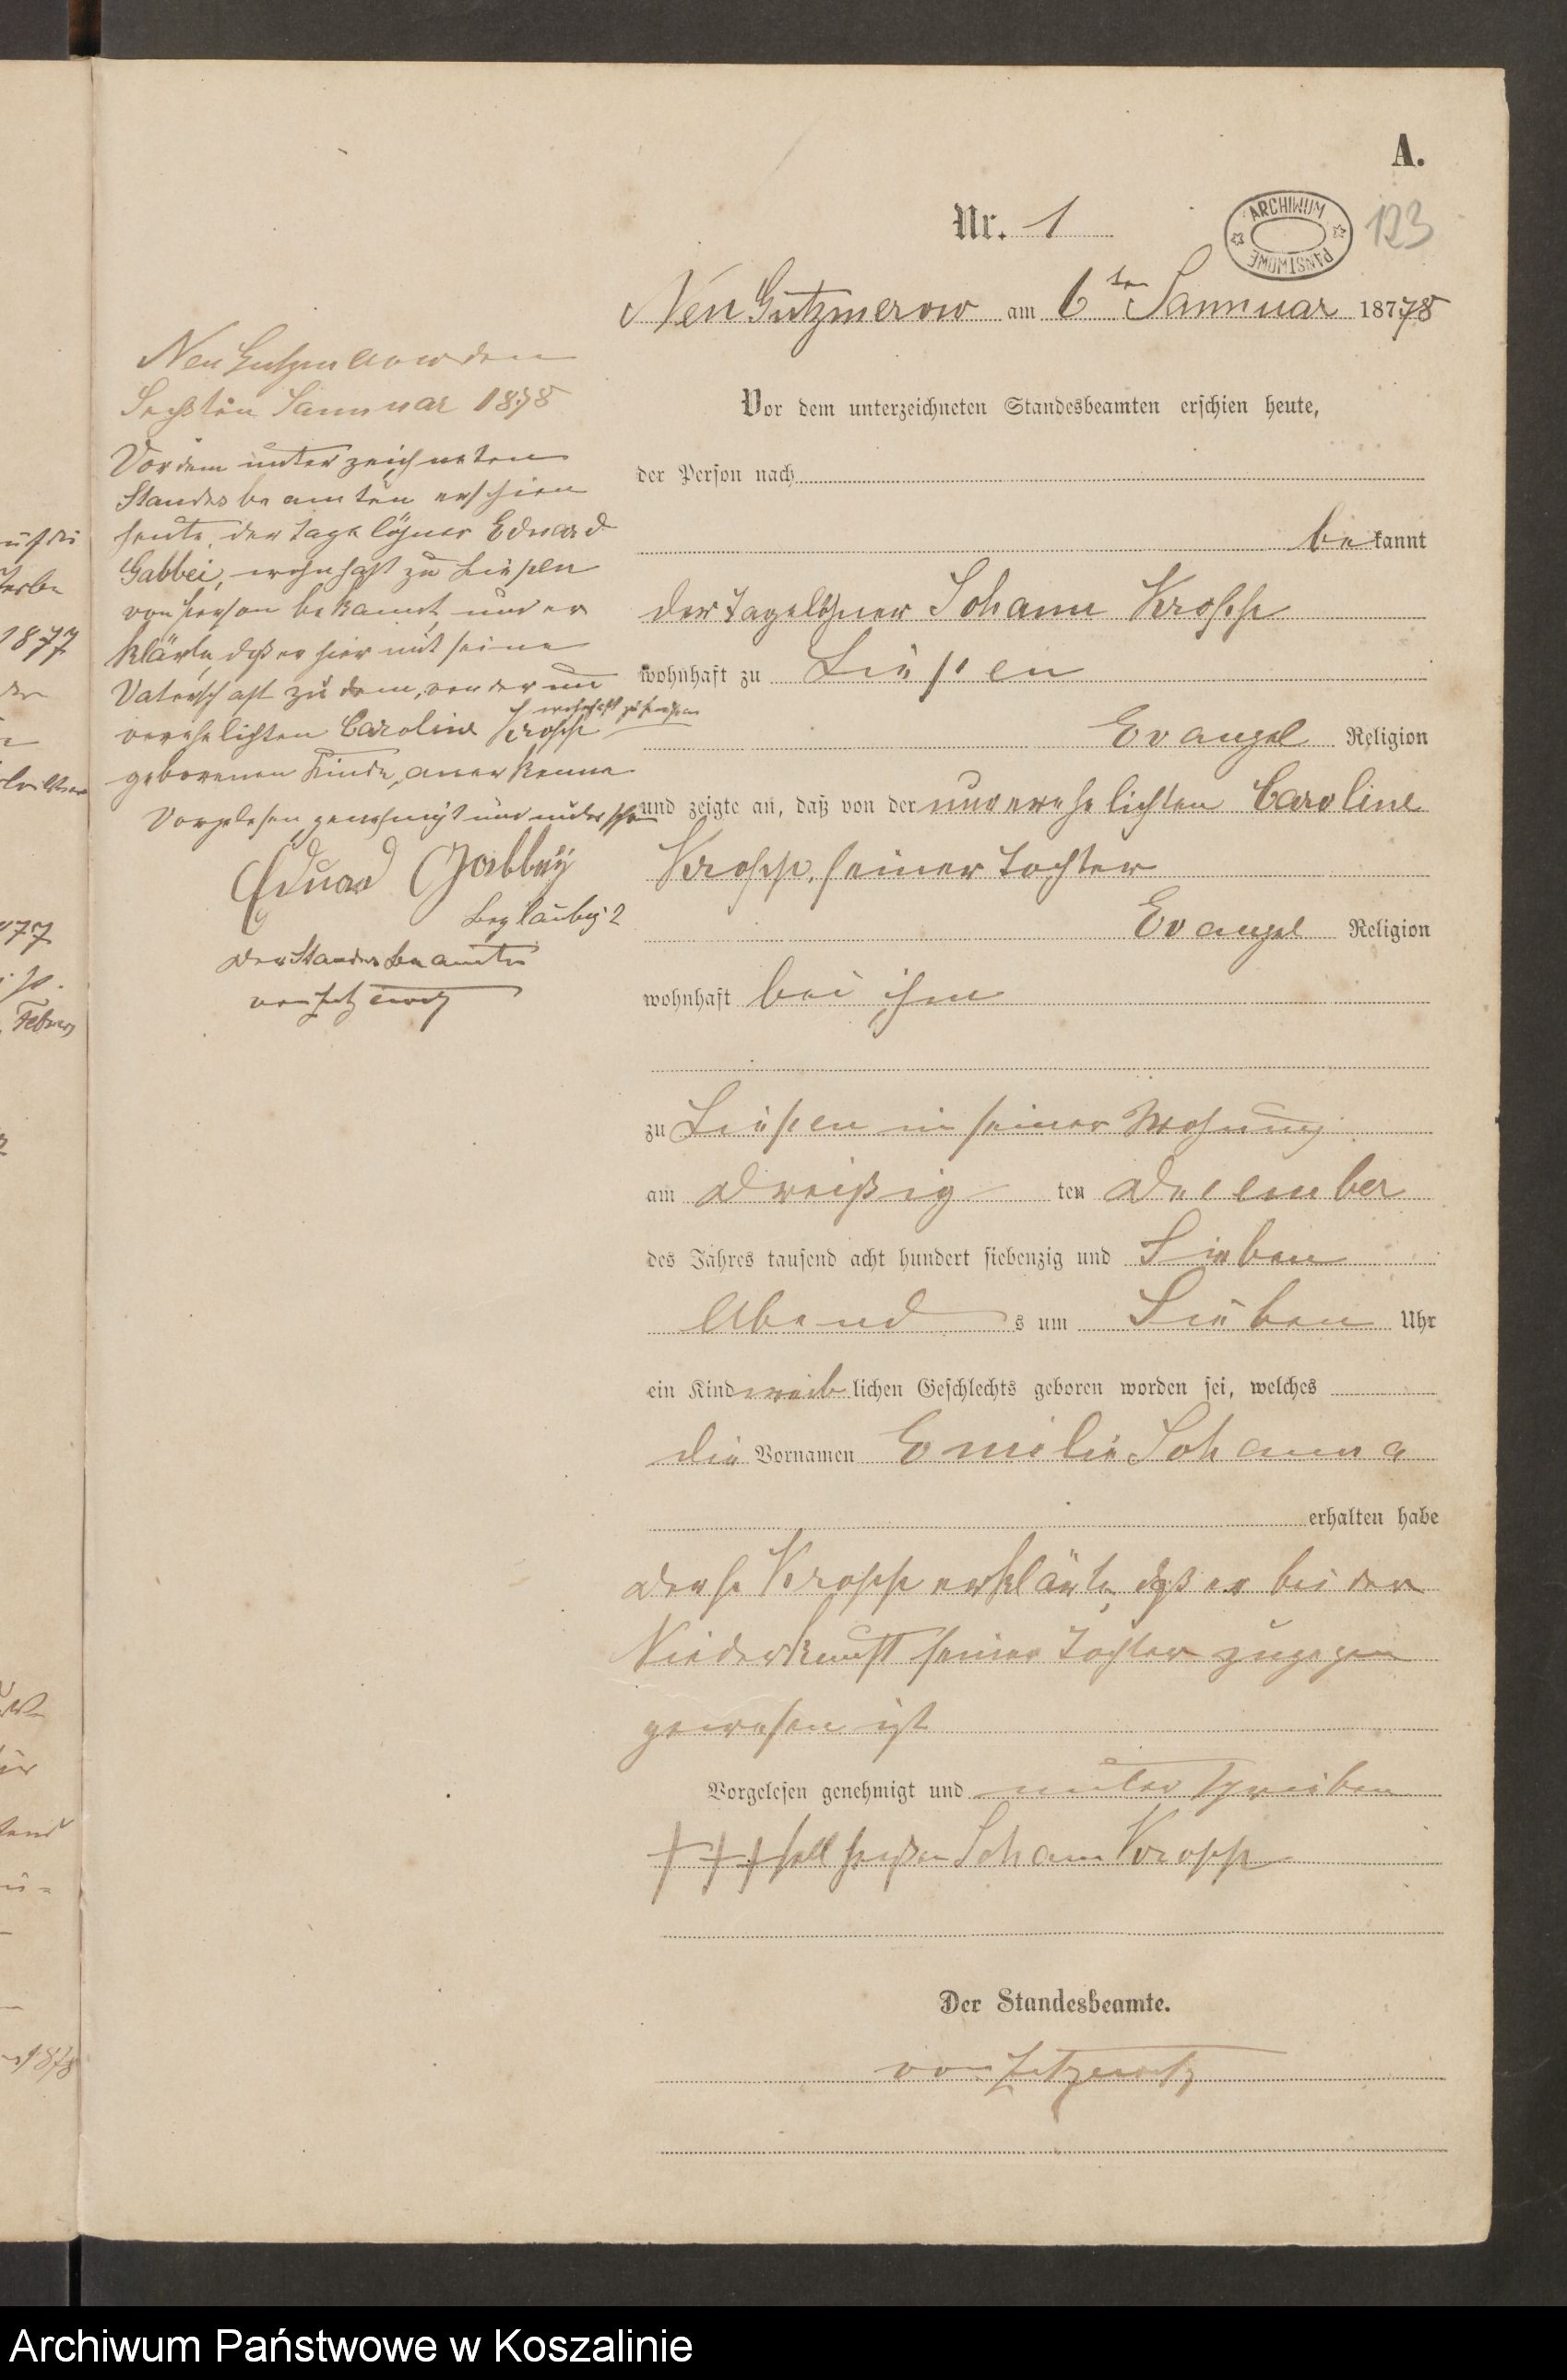 A.
Nr. 1
ARCHIWUM PAŃSTWOWE
123
Neu Gutzmerow am 6ten Januuar 1878
Vor dem unterzeichneten Standesbeamten erschien heute,
der Person nach
bekannt
der Tagelöhner Johann Kropp
wohnhaft zu Liepen
Evangel Religion
und zeigte an, daß von der unverehelichten Caroline
Kropp, seiner Tochter
Evangel Religion
wohnhaft bei ihm
zu Liepen in seiner Wohnung
am Dreißig ten December
des Jahres tausend acht hundert siebenzig und Sieben
Abend s um Sieben Uhr
ein Kind weiblichen Geschlechts geboren worden sei, welches
die Vornamen Emilie Johanna
erhalten habe
Kropp erklärte, daß er bei der
Niederkunft seiner Tochter zugegen
gewesen ist
Vorgelesen genehmigt und unterschrieben
+++ soll heißen Johann Kropp
Der Standesbeamte.
von Zitzewitz
Neu Gutzmerow den
Sechsten Januuar 1878
Vor dem unterzeichneten
Standesbeamten erschien
heute, der Tagelöhner Eduard
Gabbei, wohnhaft zu Liepen
von Person bekannt, und er
klärte daß er hiermit seine
Vaterschaft zu dem, von der un
verehelichten Caroline Kropp wohnhaft zu Liepen
geborenen Kinde, anerkenne
Vorgelesen, genehmigt und
Eduard Gabbey
Der Standesbeamte
von Zitzewitz
1877
Archiwum Państwowe w Koszalinie